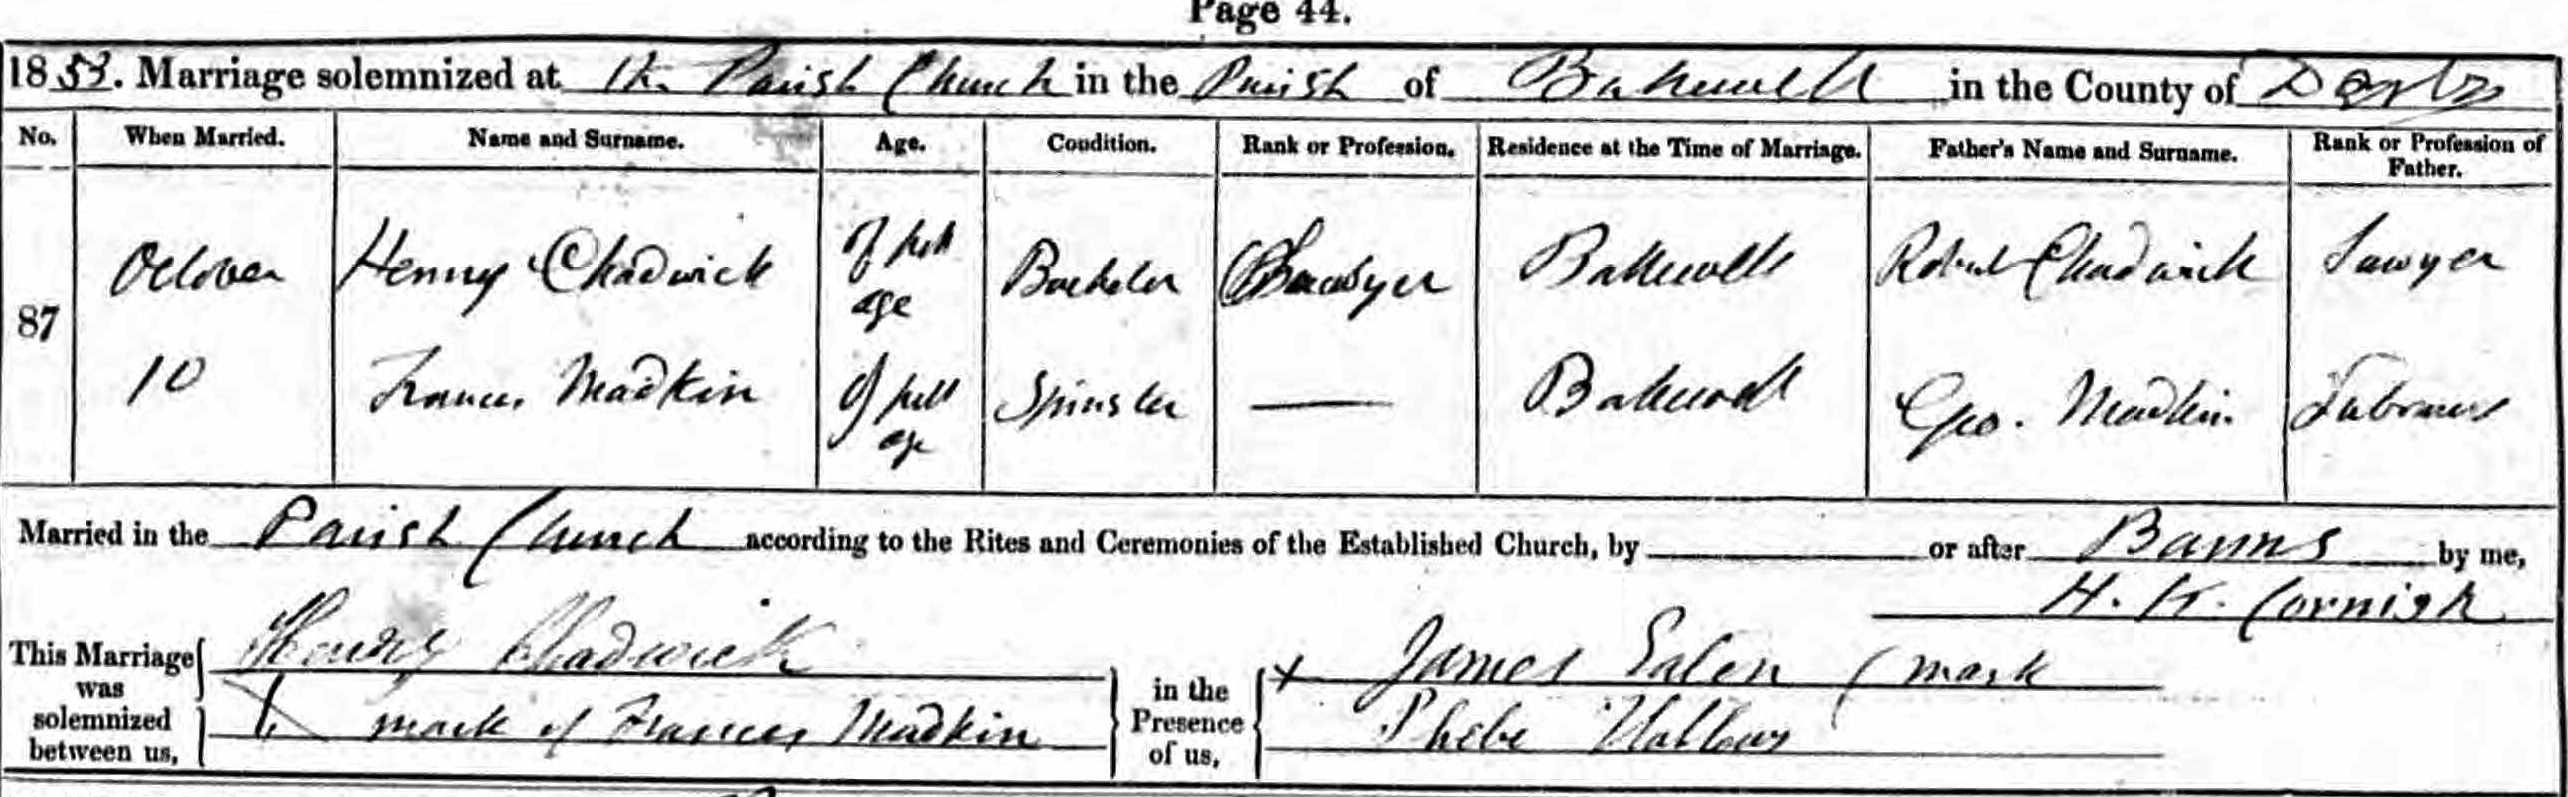 Page 44.
1853. Marriage solemnized at the Parish Church in the Parish of Bakewell in the County of Derby
No. When Married. Name and Surname. Age. Condition. Rank or Profession. Residence at the Time of Marriage. Father's Name and Surname. Rank or Profession of Father.
87
October Henry Chadwick of full age Bachelor Sawyer Bakewell Robert Chadwick Sawyer
10 Frances Madkin of full age Spinster — Bakewell Geo. Madkin Labourer
Married in the Parish Church according to the Rites and Ceremonies of the Established Church, by or after Banns by me,
H. K. Cornish
This Marriage was solemnized between us, Henry Chadwick
mark of Frances Madkin
in the Presence of us, X James mark
Phebe